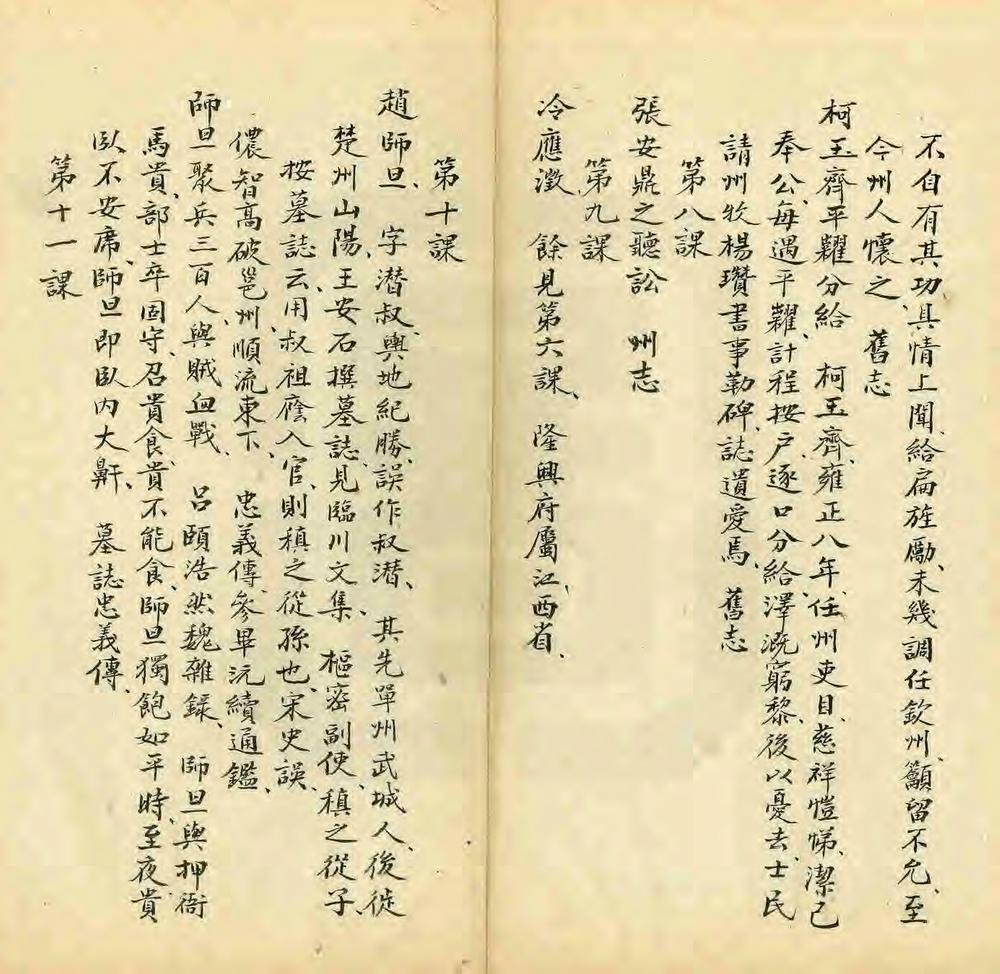 不自有其功、具情上聞、給扁旌勵、未幾調任欽州、籲留不允、至
今州人懷之、 舊志
柯玉齊平糶分給 柯玉齊、雍正八年、任州吏目、慈祥愷悌、潔己
奉公、每遇平糶、計程按户、逐口分給、澤溉窮黎、後以憂去、士民
請州牧楊瓚書事勒碑、誌遺愛焉、 舊志
第八課
張安鼎之聽訟 州志
第九課
冷應澂 餘見第六課、 隆興府屬江西省、
第十課
趙師旦、 字潛叔、輿地紀勝、誤作叔潛、 其先單州武城人、後徙
楚州山陽、王安石撰墓誌、見臨川文集、 樞密副使、稹之從子、
按墓誌云、用叔祖廕入官、則稹之從孫也、宋史誤、
儂智高破邕州、順流東下、 忠義傳、參畢沅續通鑑、
師旦聚兵三百人、與賊血戰、 呂頤浩然魏雜録、 師旦與押衙
馬貴、部士卒固守、召貴食、貴不能食、師旦獨飽如平時、至夜、貴
臥不安席、師旦即臥内大鼾、 墓誌忠義傳、
第十一課